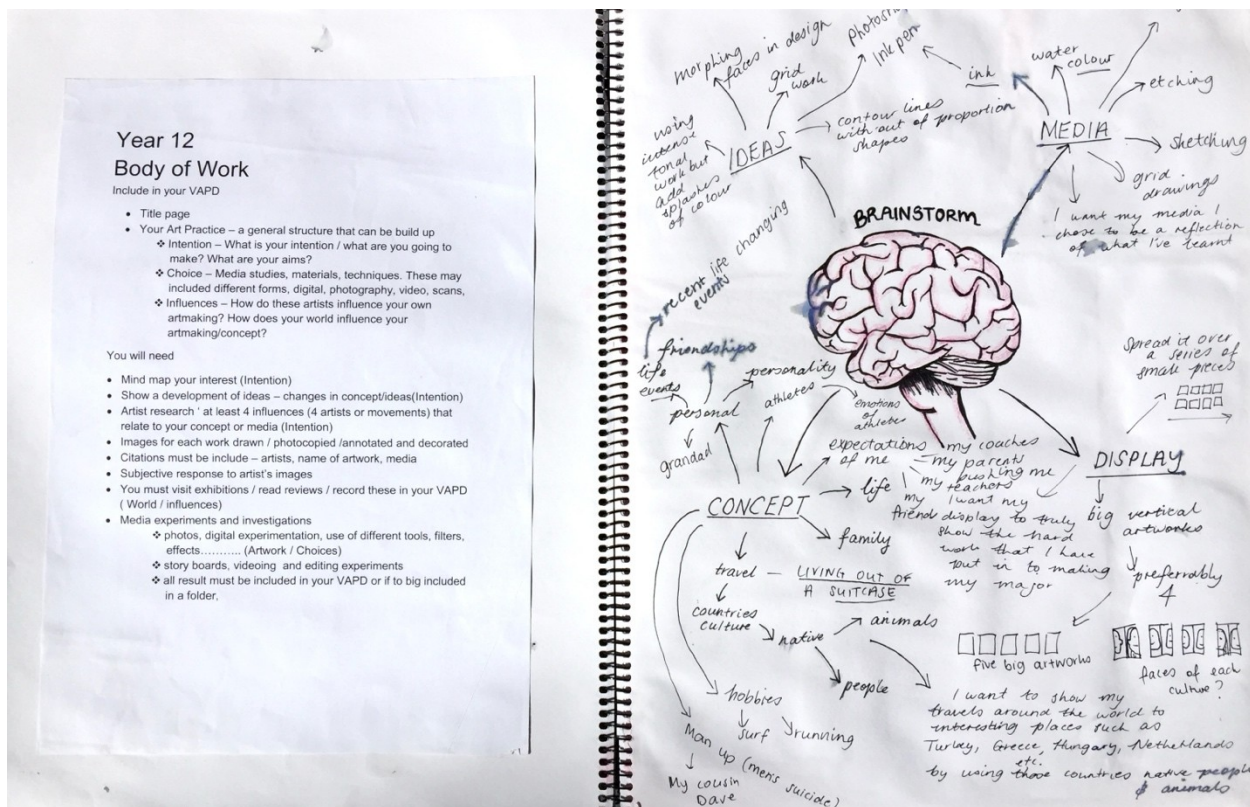 Year 12
Body of Work
Include in your VAPD
• Title page
• Your Art Practice – a general structure that can be build up
❖ Intention – What is your intention / what are you going to
make? What are your aims?
❖ Choice – Media studies, materials, techniques. These may
included different forms, digital, photography, video, scans,
❖ Influences – How do these artists influence your own
artmaking? How does your world influence your
artmaking/concept?
You will need
• Mind map your interest (Intention)
• Show a development of ideas – changes in concept/ideas(Intention)
• Artist research ' at least 4 influences (4 artists or movements) that
relate to your concept or media (Intention)
• Images for each work drawn / photocopied /annotated and decorated
• Citations must be include – artists, name of artwork, media
• Subjective response to artist's images
• You must visit exhibitions / read reviews / record these in your VAPD
( World / influences)
• Media experiments and investigations
❖ photos, digital experimentation, use of different tools, filters,
effects……….. (Artwork / Choices)
❖ story boards, videoing and editing experiments
❖ all result must be included in your VAPD or if to big included
in a folder.
BRAINSTORM
IDEAS
morphing
faces in design
grid
work
Ink pen
contour lines
with out of proportion
shapes
using
intense
tonal
work but
add
splashes
of colour
MEDIA
ink
water
colour
etching
sketching
grid
drawings
I want my media I
chose to be a reflection
of what I've learnt
CONCEPT
personal
life
events
recent life changing
events
friendships
personality
grandad
athletes
emotions
of
athletes
expectations
of me
my coaches
my parents
pushing me
my teachers
my
friend
life
family
travel – LIVING OUT OF
A SUITCASE
countries
culture
native
animals
people
hobbies
surf
running
Man up (mens suicide)
My cousin
Dave
I want to show my
travels around the world to
interesting places such as
Turkey, Greece, Hungary, Netherlands
etc.
by using those countries native people
& animals
DISPLAY
Spread it over
a series of
small pieces
I want my
display to truly
show the hard
work that I have
put in to making
my major
big vertical
artworks
preferrably
4
five big artworks
faces of each
culture?